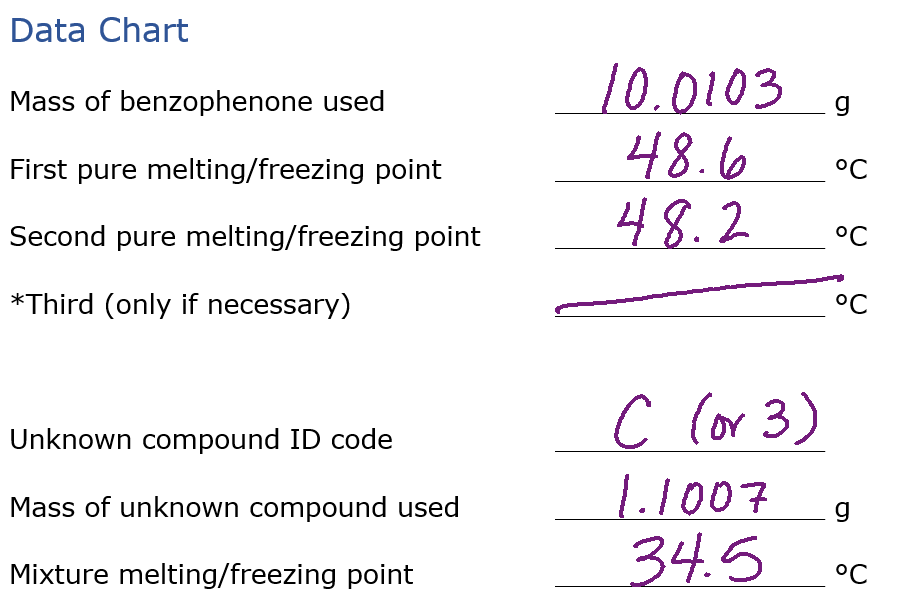 Data Chart
Mass of benzophenone used 10.0103 g
First pure melting/freezing point 48.6 °C
Second pure melting/freezing point 48.2 °C
*Third (only if necessary) °C
Unknown compound ID code C (or 3)
Mass of unknown compound used 1.1007 g
Mixture melting/freezing point 34.5 °C